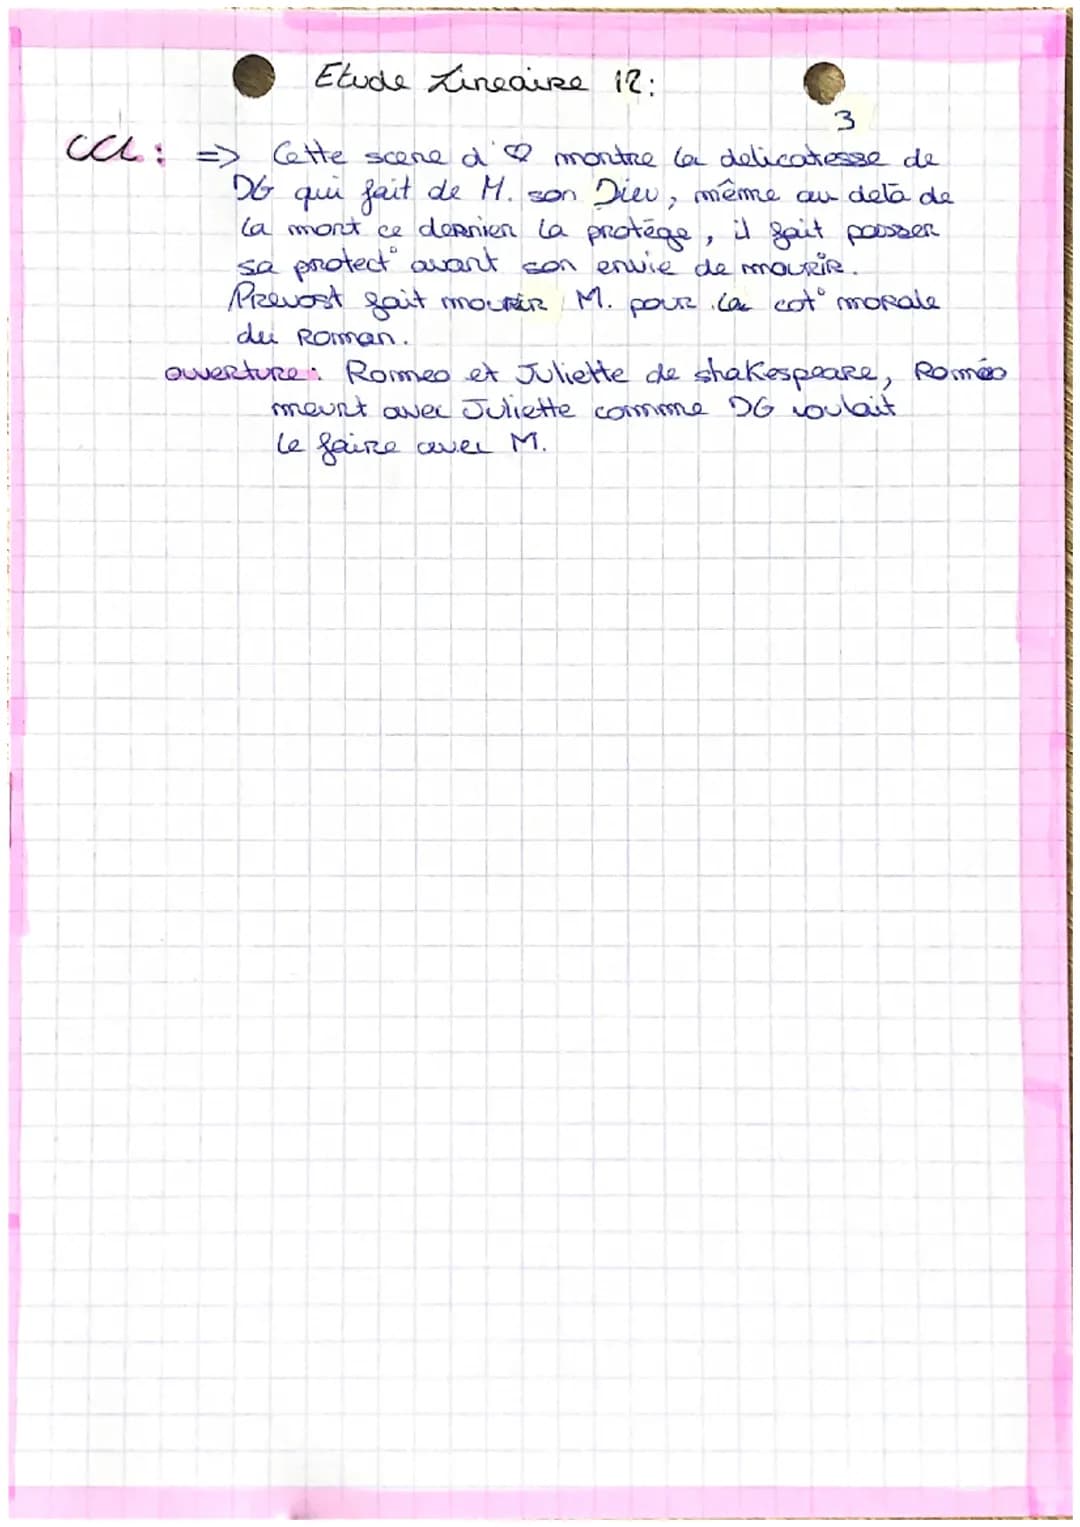 Etude Lineaire 12:
3
CCL: => Cette scene d'♡ montre la delicatesse de
DG qui fait de M. son Dieu, même au delà de
la mort ce dernier la protège, il fait passer
sa protect° avant son envie de mourir.
Prevost fait mourir M. pour la cot° morale
du Roman.
ouverture: Romeo et Juliette de shakespeare, Roméo
meurt avec Juliette comme DG voulait
le faire avec M.